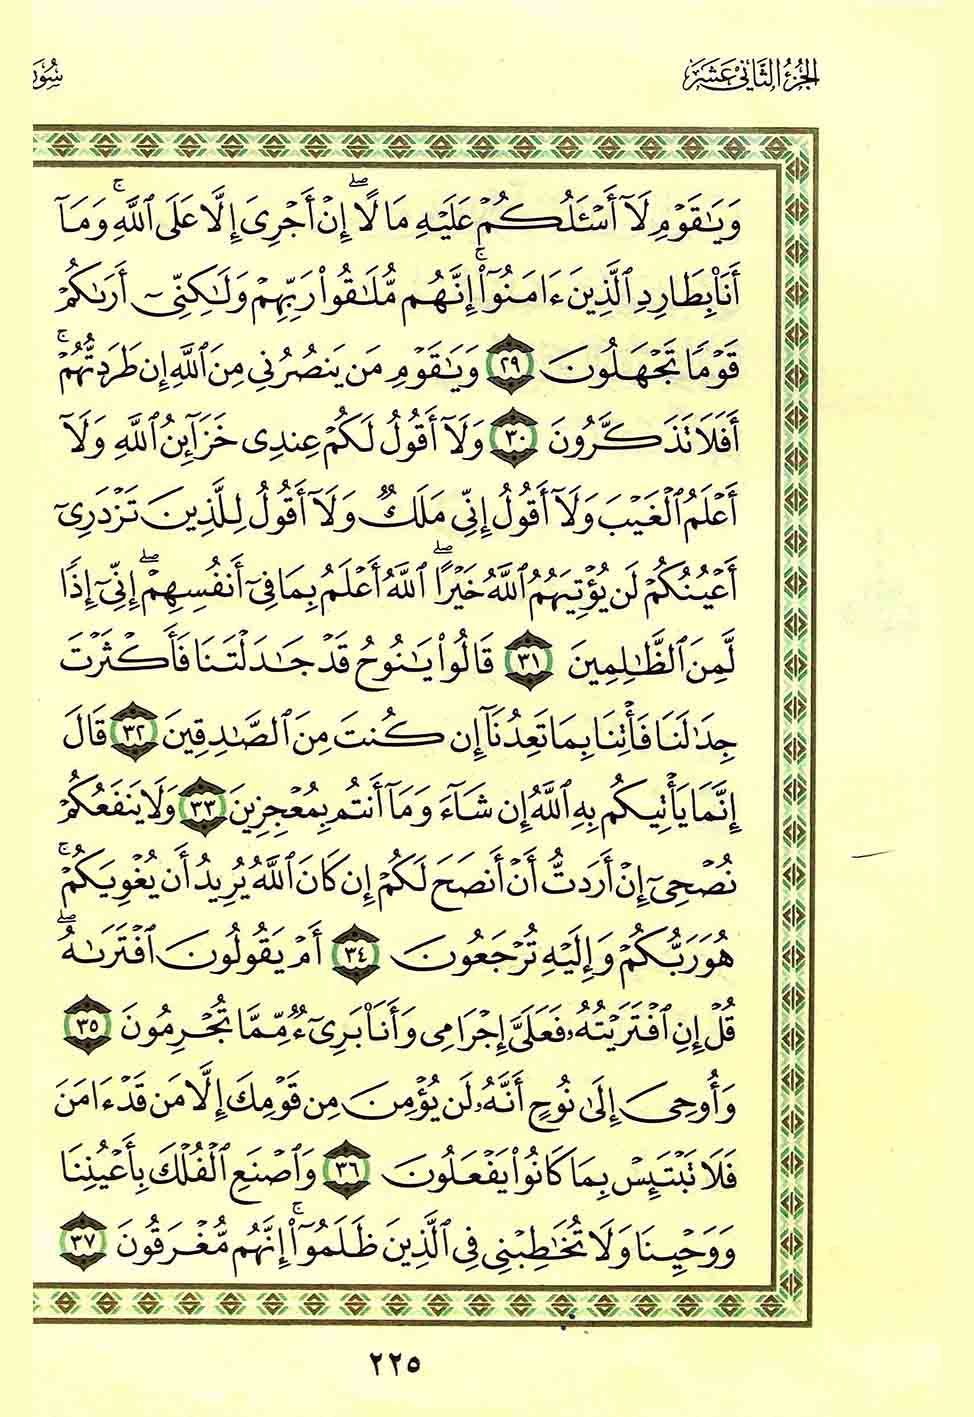 الجزء الثاني عشر
وَيَٰقَوْمِ لَآ أَسْـَٔلُكُمْ عَلَيْهِ مَالًا ۖ إِنْ أَجْرِىَ إِلَّا عَلَى ٱللَّهِ ۚ وَمَآ
أَنَا۠ بِطَارِدِ ٱلَّذِينَ ءَامَنُوٓا۟ ۚ إِنَّهُم مُّلَٰقُوا۟ رَبِّهِمْ وَلَٰكِنِّىٓ أَرَىٰكُمْ
قَوْمًا تَجْهَلُونَ ٢٩ وَيَٰقَوْمِ مَن يَنصُرُنِى مِنَ ٱللَّهِ إِن طَرَدتُّهُمْ ۚ
أَفَلَا تَذَكَّرُونَ ٣٠ وَلَآ أَقُولُ لَكُمْ عِندِى خَزَآئِنُ ٱللَّهِ وَلَآ
أَعْلَمُ ٱلْغَيْبَ وَلَآ أَقُولُ إِنِّى مَلَكٌ وَلَآ أَقُولُ لِلَّذِينَ تَزْدَرِىٓ
أَعْيُنُكُمْ لَن يُؤْتِيَهُمُ ٱللَّهُ خَيْرًا ۖ ٱللَّهُ أَعْلَمُ بِمَا فِىٓ أَنفُسِهِمْ ۖ إِنِّىٓ إِذًا
لَّمِنَ ٱلظَّٰلِمِينَ ٣١ قَالُوا۟ يَٰنُوحُ قَدْ جَٰدَلْتَنَا فَأَكْثَرْتَ
جِدَٰلَنَا فَأْتِنَا بِمَا تَعِدُنَآ إِن كُنتَ مِنَ ٱلصَّٰدِقِينَ ٣٢ قَالَ
إِنَّمَا يَأْتِيكُم بِهِ ٱللَّهُ إِن شَآءَ وَمَآ أَنتُم بِمُعْجِزِينَ ٣٣ وَلَا يَنفَعُكُمْ
نُصْحِىٓ إِنْ أَرَدتُّ أَنْ أَنصَحَ لَكُمْ إِن كَانَ ٱللَّهُ يُرِيدُ أَن يُغْوِيَكُمْ ۚ
هُوَ رَبُّكُمْ وَإِلَيْهِ تُرْجَعُونَ ٣٤ أَمْ يَقُولُونَ ٱفْتَرَىٰهُ ۖ
قُلْ إِنِ ٱفْتَرَيْتُهُۥ فَعَلَىَّ إِجْرَامِى وَأَنَا۠ بَرِىٓءٌ مِّمَّا تُجْرِمُونَ ٣٥
وَأُوحِىَ إِلَىٰ نُوحٍ أَنَّهُۥ لَن يُؤْمِنَ مِن قَوْمِكَ إِلَّا مَن قَدْ ءَامَنَ
فَلَا تَبْتَئِسْ بِمَا كَانُوا۟ يَفْعَلُونَ ٣٦ وَٱصْنَعِ ٱلْفُلْكَ بِأَعْيُنِنَا
وَوَحْيِنَا وَلَا تُخَٰطِبْنِى فِى ٱلَّذِينَ ظَلَمُوٓا۟ ۚ إِنَّهُم مُّغْرَقُونَ ٣٧
٢٢٥